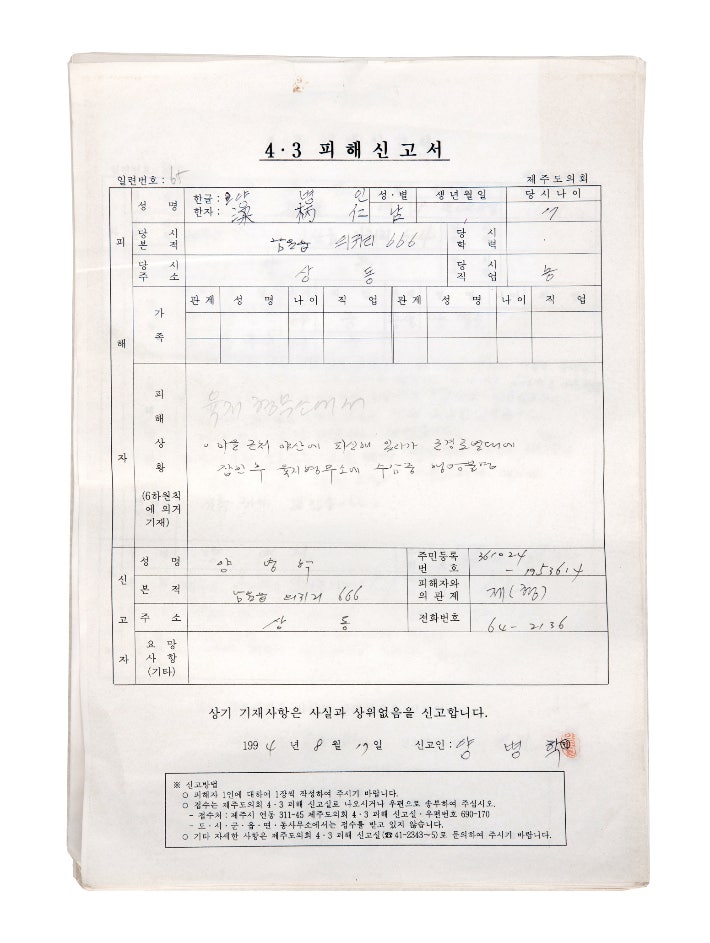 4·3 피해신고서
일련번호: 65 제주도의회
피해자
성 명 한글: 양 병 인 성·별 생년월일 당시나이
한자: 梁 柄 仁 남 17
당시본적 남원읍 의귀리 666 당시학력
당시주소 상 동 당시직업 농
가족 관계 성 명 나이 직 업 관계 성 명 나이 직 업
피해상황
(6하원칙에 의거 기재)
육지형무소에서
마을 근처 야산에 피신해 있다가 군경토벌대에
잡힌 후 육지형무소에 수감중 행방불명
신고자
성 명 양 병 주민등록번호 361024
-1953614
본 적 남원읍 의귀리 666 피해자와의 관계 제(형)
주 소 상 동 전화번호 64-2136
요망사항(기타)
상기 기재사항은 사실과 상위없음을 신고합니다.
1994년 8월 19일 신고인: 양 병
※ 신고방법
○ 피해자 1인에 대하여 1장씩 작성하여 주시기 바랍니다.
○ 접수는 제주도의회 4·3 피해 신고실로 나오시거나 우편으로 송부하여 주십시오.
- 접수처: 제주시 연동 311-45 제주도의회 4·3 피해 신고실·우편번호 690-170
- 도·시·군·읍·면·동사무소에서는 접수를 받고 있지 않습니다.
○ 기타 자세한 사항은 제주도의회 4·3 피해 신고실(☎41-2343~5)로 문의하여 주시기 바랍니다.